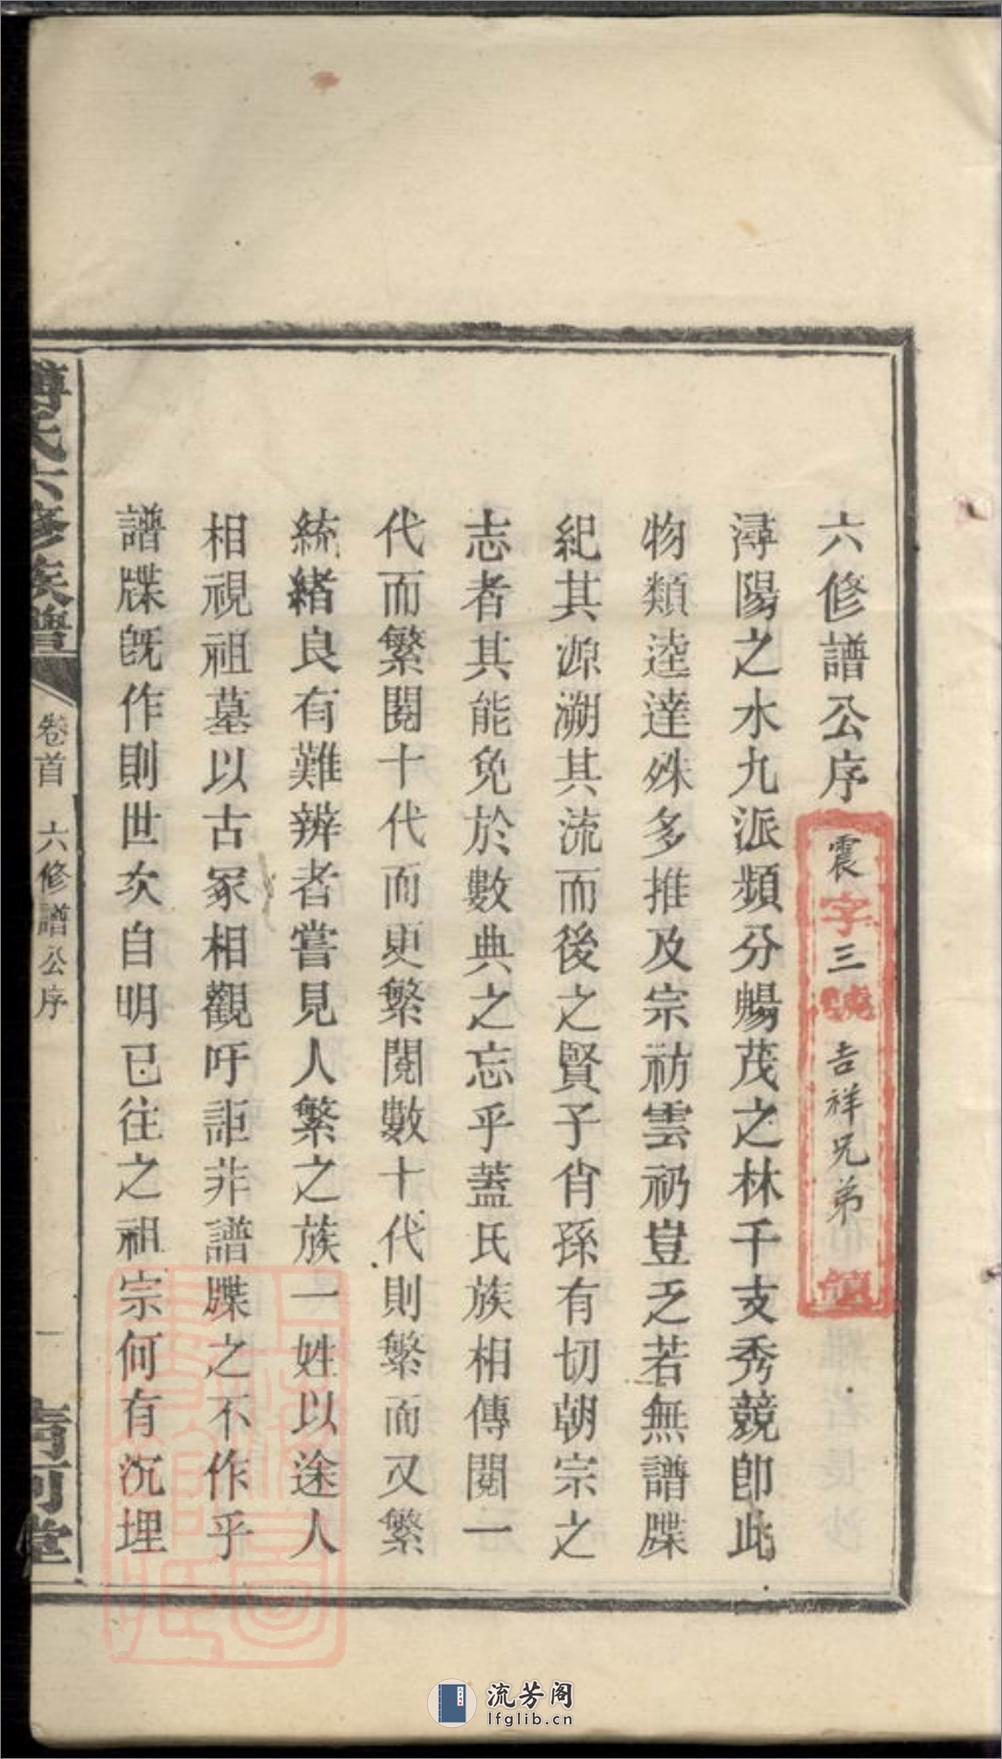 六修譜公序
震字三號吉祥兄弟領
潯陽之水九派頻分暢茂之林千支秀競卽此
物類逵達殊多推及宗祊雲礽豈乏若無譜牒
紀其源溯其流而後之賢子肖孫有切朝宗之
志者其能免於數典之忘乎蓋氏族相傳閱一
代而繁閱十代而更繁閱數十代則繁而又繁
統緒良有難辨者嘗見人繁之族一姓以途人
相視祖墓以古冢相觀吁詎非譜牒之不作乎
譜牒旣作則世次自明已往之祖宗何有沉埋
傅氏六修族譜
卷首
六修譜公序
一
清河堂
流芳阁
lfglib.cn